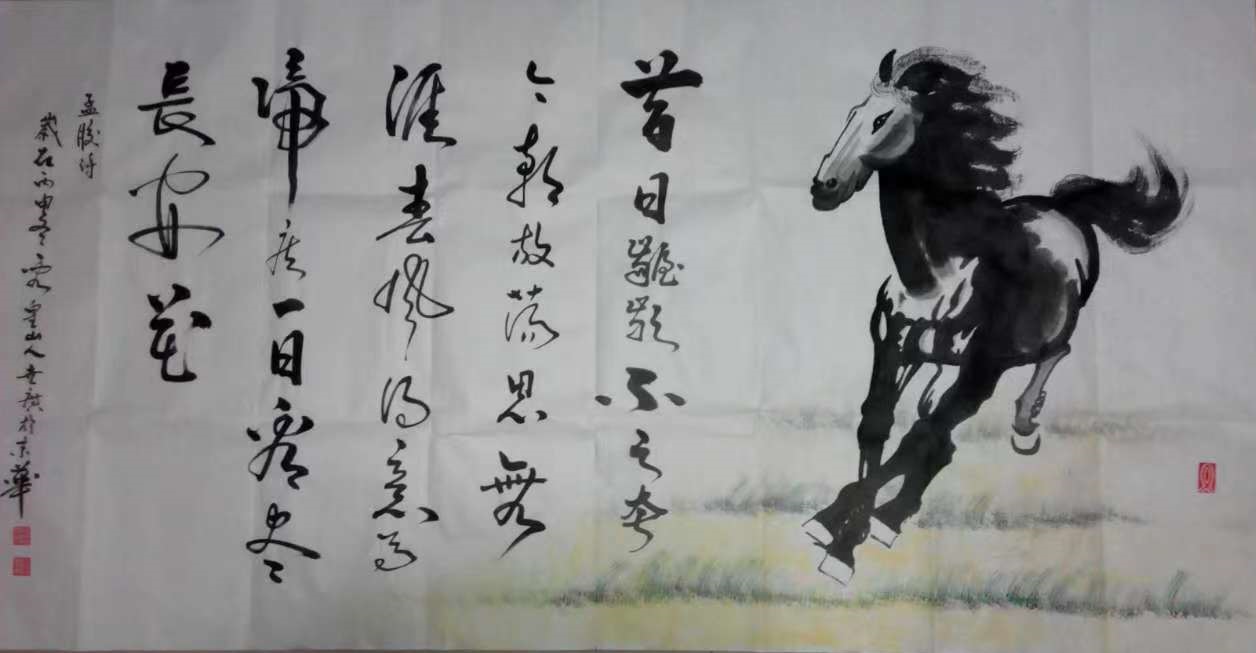 昔日齷齪不足夸
今朝放蕩思無
涯春風得意馬
蹄疾一日看盡
長安花
孟郊詩
歲在丙申冬山人於京華